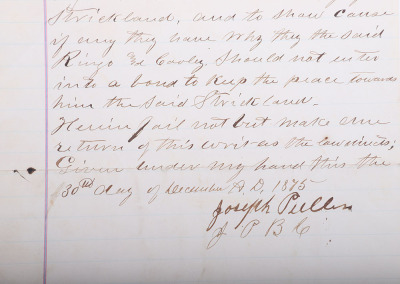 Strickland, and to show cause
if any they have why they the said
Ringo Ed Cooley Should not enter
into a bond to Keep the peace towards
him the Said Strickland.
Herein fail not but make due
return of this writ as the law directs;
Given under my hand this the
30th day of December A, D, 1875
Joseph Pullen
J P B C